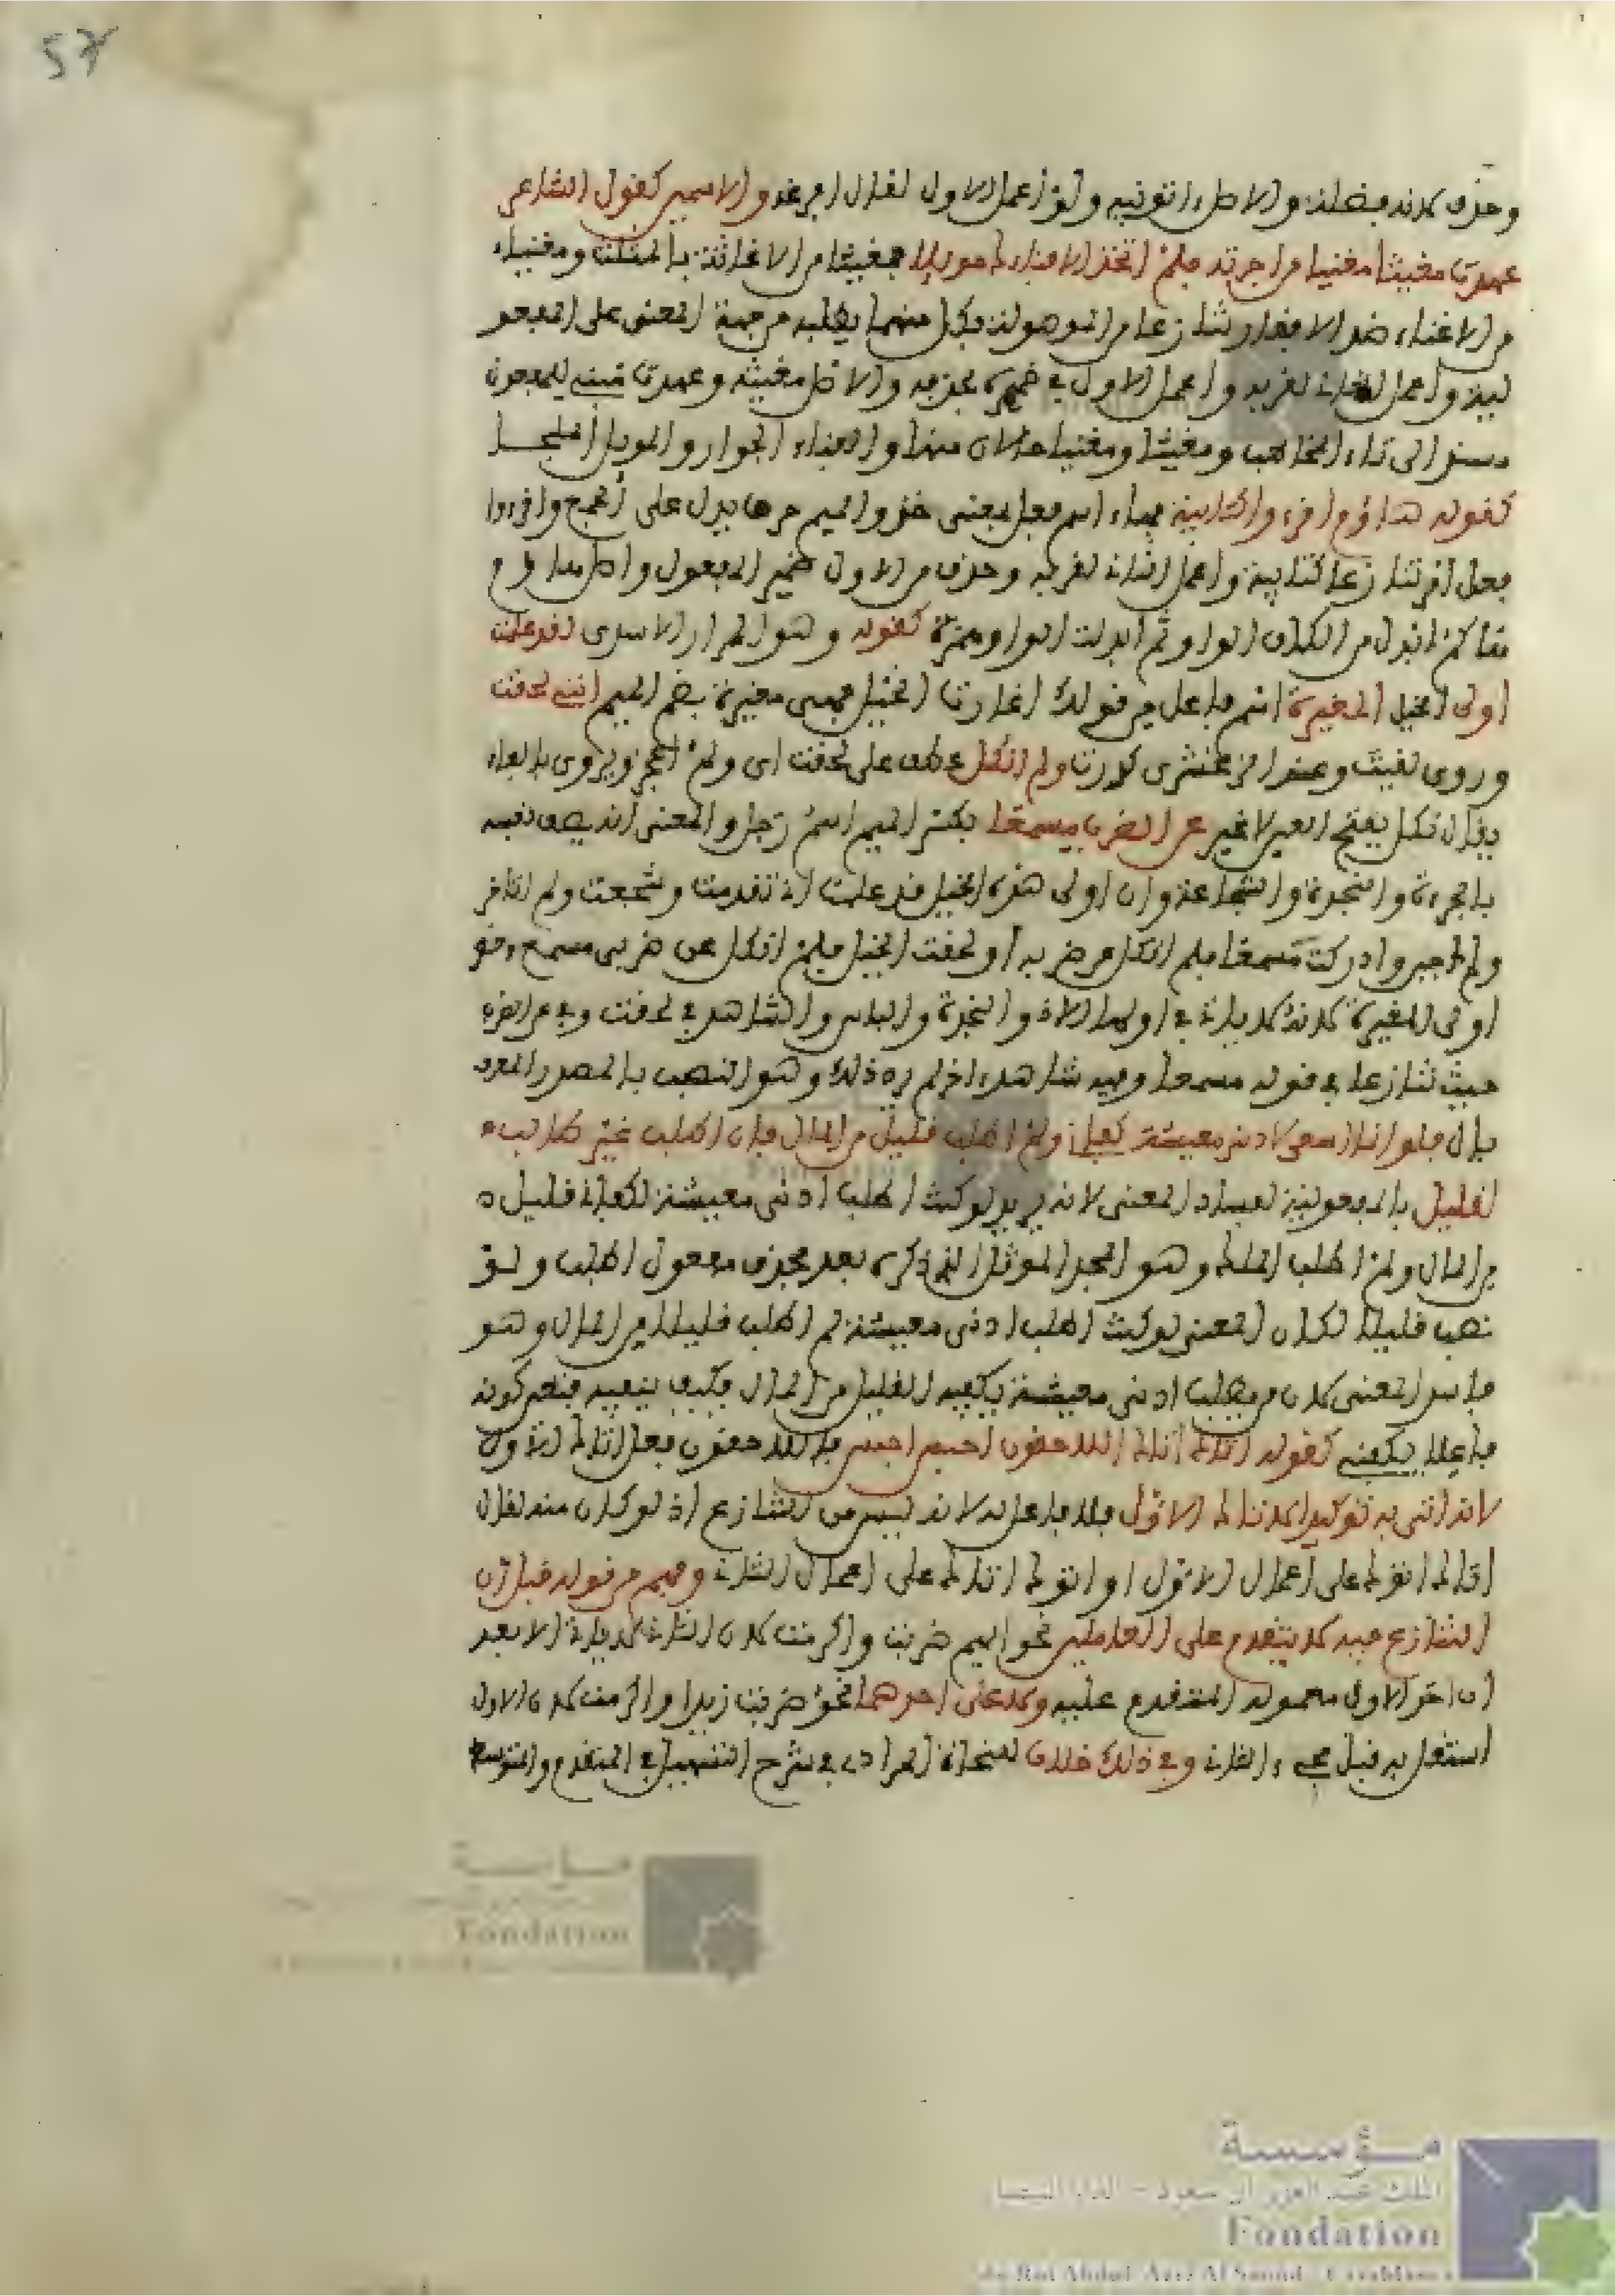 57
وحذف لانه فضلة والاصل اتوني به ولو أعمل الاول لقال افرغه والاسمين كقول الشاعر
عهدت مغيثا مغنيا من اجرته فلم اتخذ الا فناءك موئلا فمغيثا من الاغاثة بالمثلثة ومغنيا
من الاغناء ضد الافقار تنازعا من الموصولة فكل منهما يطلبه من جهة المعنى على المفعو
لية واعمل الثاني لقربه وأعمل الاول في ضميره بحذفه والاصل مغيثه وعهدت مبني للمفعول
مسند الى تاء المخاطب ومغيثا ومغنيا حالان منها والفناء الجوار والموئل الملجـأ
كقوله هاؤم اقرءوا كتابيه فهاء اسم فعل بمعنى خذ والميم حرف يدل على الجمع واقرءوا
فعل امر تنازعا كتابيه واعمل الثاني لقربه وحذف من الاول ضمير المفعول واصل هاؤم
هاكم ابدل من الكاف الواو ثم ابدلت الواو همزة كقوله وهو المرار الاسدي لقد علمت
اولى الخيل المغيرة اسم فاعل من قولك اغارت الخيل فهي مغيرة بضم الميم انني لحقت
وروي لقيت وعند الزمخشري كررت ولم انكل عطف على لحقت اي ولم اعجز ويروى بالفاء
يقال نكل بفتح العين لا غير عن الضرب مسمعا بكسر الميم اسم رجل والمعنى أنه يصف نفسه
بالجرءة والنجدة والشجاعة وان اولى هذه الخيل قد علمت اني تقدمت وشجعت ولم اتأخر
ولم اجبن وادركت مسمعا فلم انكل عن ضربه أو لحقت الخيل فلم انكل عن ضربي مسمع وخص
اولى المغيرة لانه لا يبارز في اولها الا ذو النجدة والباس والشاهد في لحقت وفي عن الضرب
حيث تنازعا في قوله مسمعا وفيه شاهد اخر لم يرد ذلك وهو النصب بالمصدر المعرف
بال فلو ان ما اسعى لادنى معيشة كفاني ولم اطلب قليل من المال فان اطلب غير طالب
لقليل بالمفعولية لفساد المعنى لانه يريد لو كنت اطلب ادنى معيشة لكفاني قليل
من المال ولم اطلب الملك وهو المجد الموثل الذي ذكره بعد بحذف مفعول اطلب ولـو
نصب قليلا لكان المعنى لو كنت اطلب ادنى معيشة لم اطلب قليلا من المال وهو
فاسد المعنى لان من يطلب ادنى معيشة يكفيه القليل من المال فكيف ينفيه فتعين كونه
فاعلا بكفى كقوله اتاك اتاك اللاحقون احبس احبس فاللاحقون فعل اتاك الاول
لانه اتى به توكيدا لاتاك الاول فلا فاعل له لانه ليس من التنازع اذ لو كان منه لقال
اتاك اتوك على اعمال الاول او اتوك اتاك على اعمال الثاني وفهم من قوله قبل ان
التنازع فيه لا يتقدم على العاملين نحو ايهم ضربت واكرمت لان الثاني لا يبارز الا بعد
ان اخذ الاول معموله المتقدم عليه ولا على احدهما نحو ضربت زيدا واكرمت لان الاول
استقل به قبل مجيء الثاني وفي ذلك خلاف للنحاة المرادي في شرح التسهيل في المتقدم والمتوسط
مؤسسة
Fondation
مؤسسة
الملك عبد العزيز آل سعود - الدار البيضاء
Fondation
du Roi Abdul-Aziz Al Saoud - Casablanca